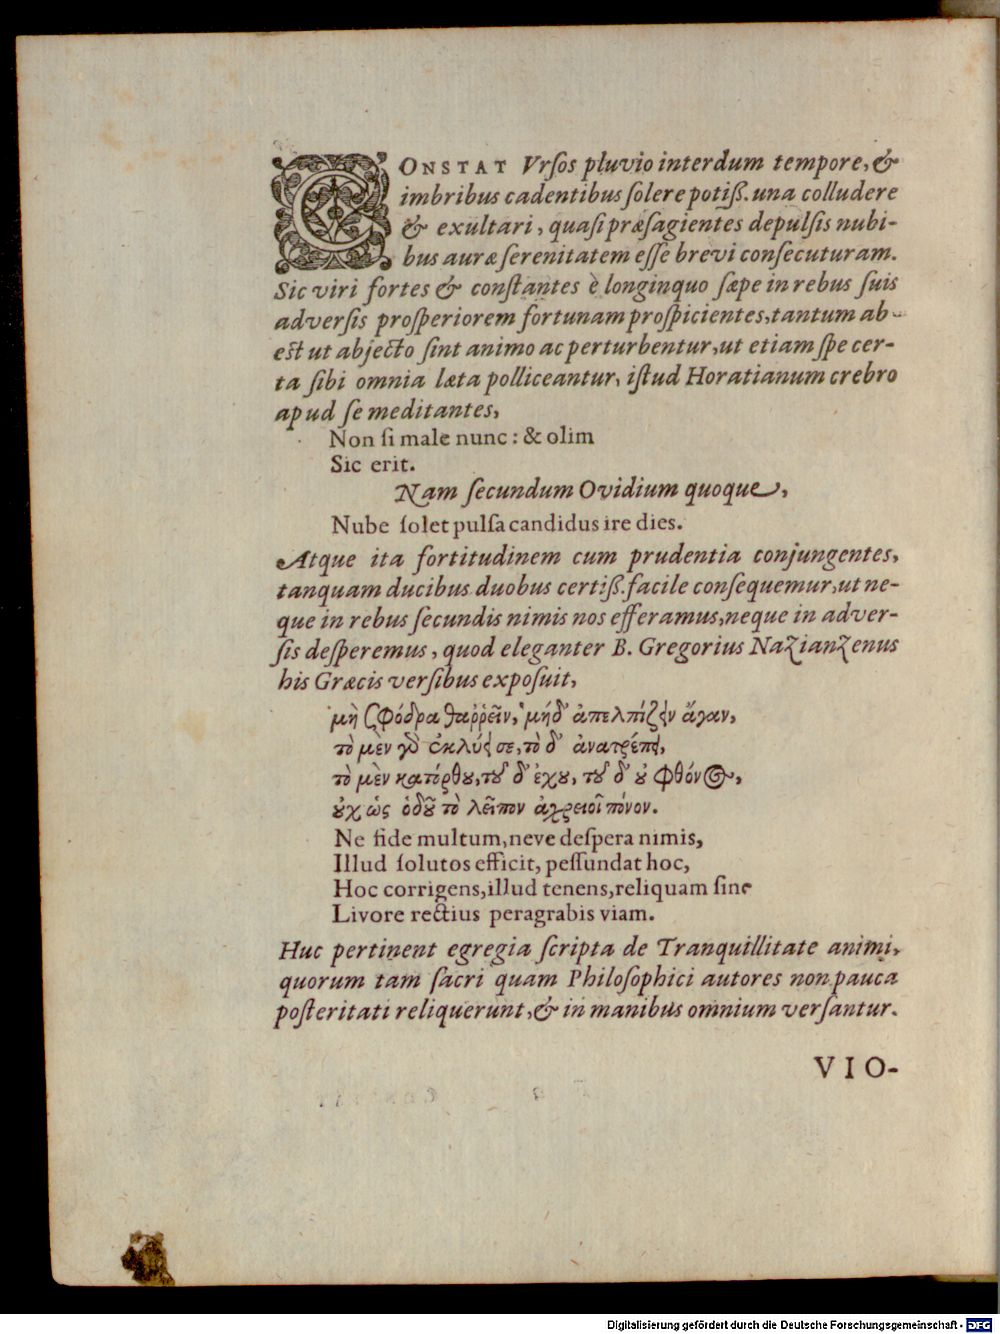 CONSTAT Vrſos pluvio interdum tempore, &
imbribus cadentibus ſolere potiſſ. una colludere
& exultari, quaſi præſagientes depulſis nubi-
bus auræ ſerenitatem eſſe brevi conſecuturam.
Sic viri fortes & conſtantes è longinquo ſæpe in rebus ſuis
adverſis proſperiorem fortunam proſpicientes, tantum ab-
est ut abjecto ſint animo ac perturbentur, ut etiam ſpe cer-
ta ſibi omnia læta polliceantur, iſtud Horatianum crebro
apud ſe meditantes,
Non ſi male nunc: & olim
Sic erit.
Nam ſecundum Ovidium quoque,
Nube ſolet pulſa candidus ire dies.
Atque ita fortitudinem cum prudentia conjungentes,
tanquam ducibus duobus certiſſ. facile conſequemur, ut ne-
que in rebus ſecundis nimis nos efferamus, neque in adver-
ſis deſperemus, quod eleganter B. Gregorius Nazianzenus
his Græcis verſibus expoſuit,
μὴ σφόδρα θαῤῥεῖν, μήδ' ἀπελπίζειν ἄγαν,
τὸ μὲν γὸ ἐκλύει σε, τὸ δ' ἀνατρέπει,
τὸ μὲν κατόρθου, τοῦ δ' ἐχου, τοῦ δ' οὐ φθόνος,
οὐχ ὡς ὁδοῦ τὸ λεῖπον ἀχρειοῖ πόνον.
Ne fide multum, neve deſpera nimis,
Illud ſolutos efficit, peſſundat hoc,
Hoc corrigens, illud tenens, reliquam ſine
Livore rectius peragrabis viam.
Huc pertinent egregia ſcripta de Tranquillitate animi,
quorum tam ſacri quam Philoſophici autores non pauca
poſteritati reliquerunt, & in manibus omnium verſantur.
VIO-
Digitalisierung gefördert durch die Deutsche Forschungsgemeinschaft - DFG